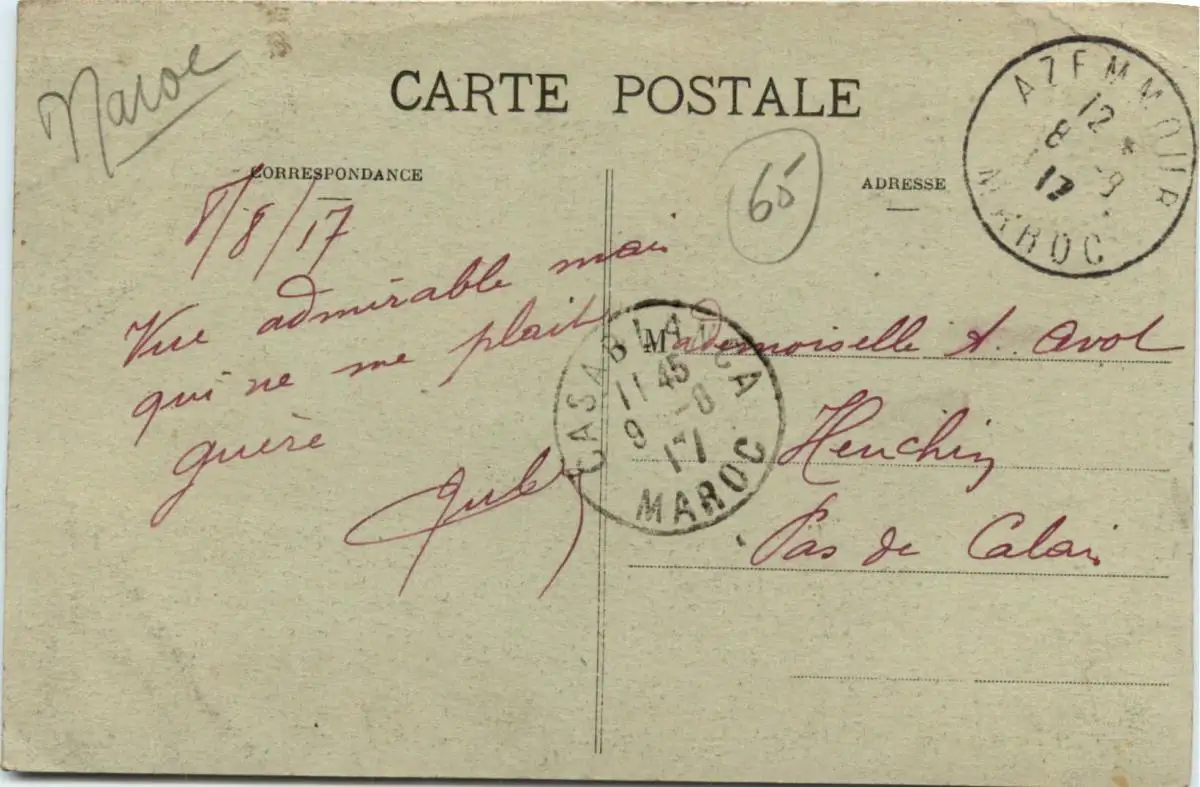 Maroc
CARTE POSTALE
65
AZEMMOUR
12 *
8 -8
17
MAROC
CORRESPONDANCE
ADRESSE
8/8/17
Vue admirable mais
qui ne me plait
guère
CASABLANCA
11 45
9 -8
17
MAROC
Mademoiselle A. Avot
Heuchin
Pas de Calais